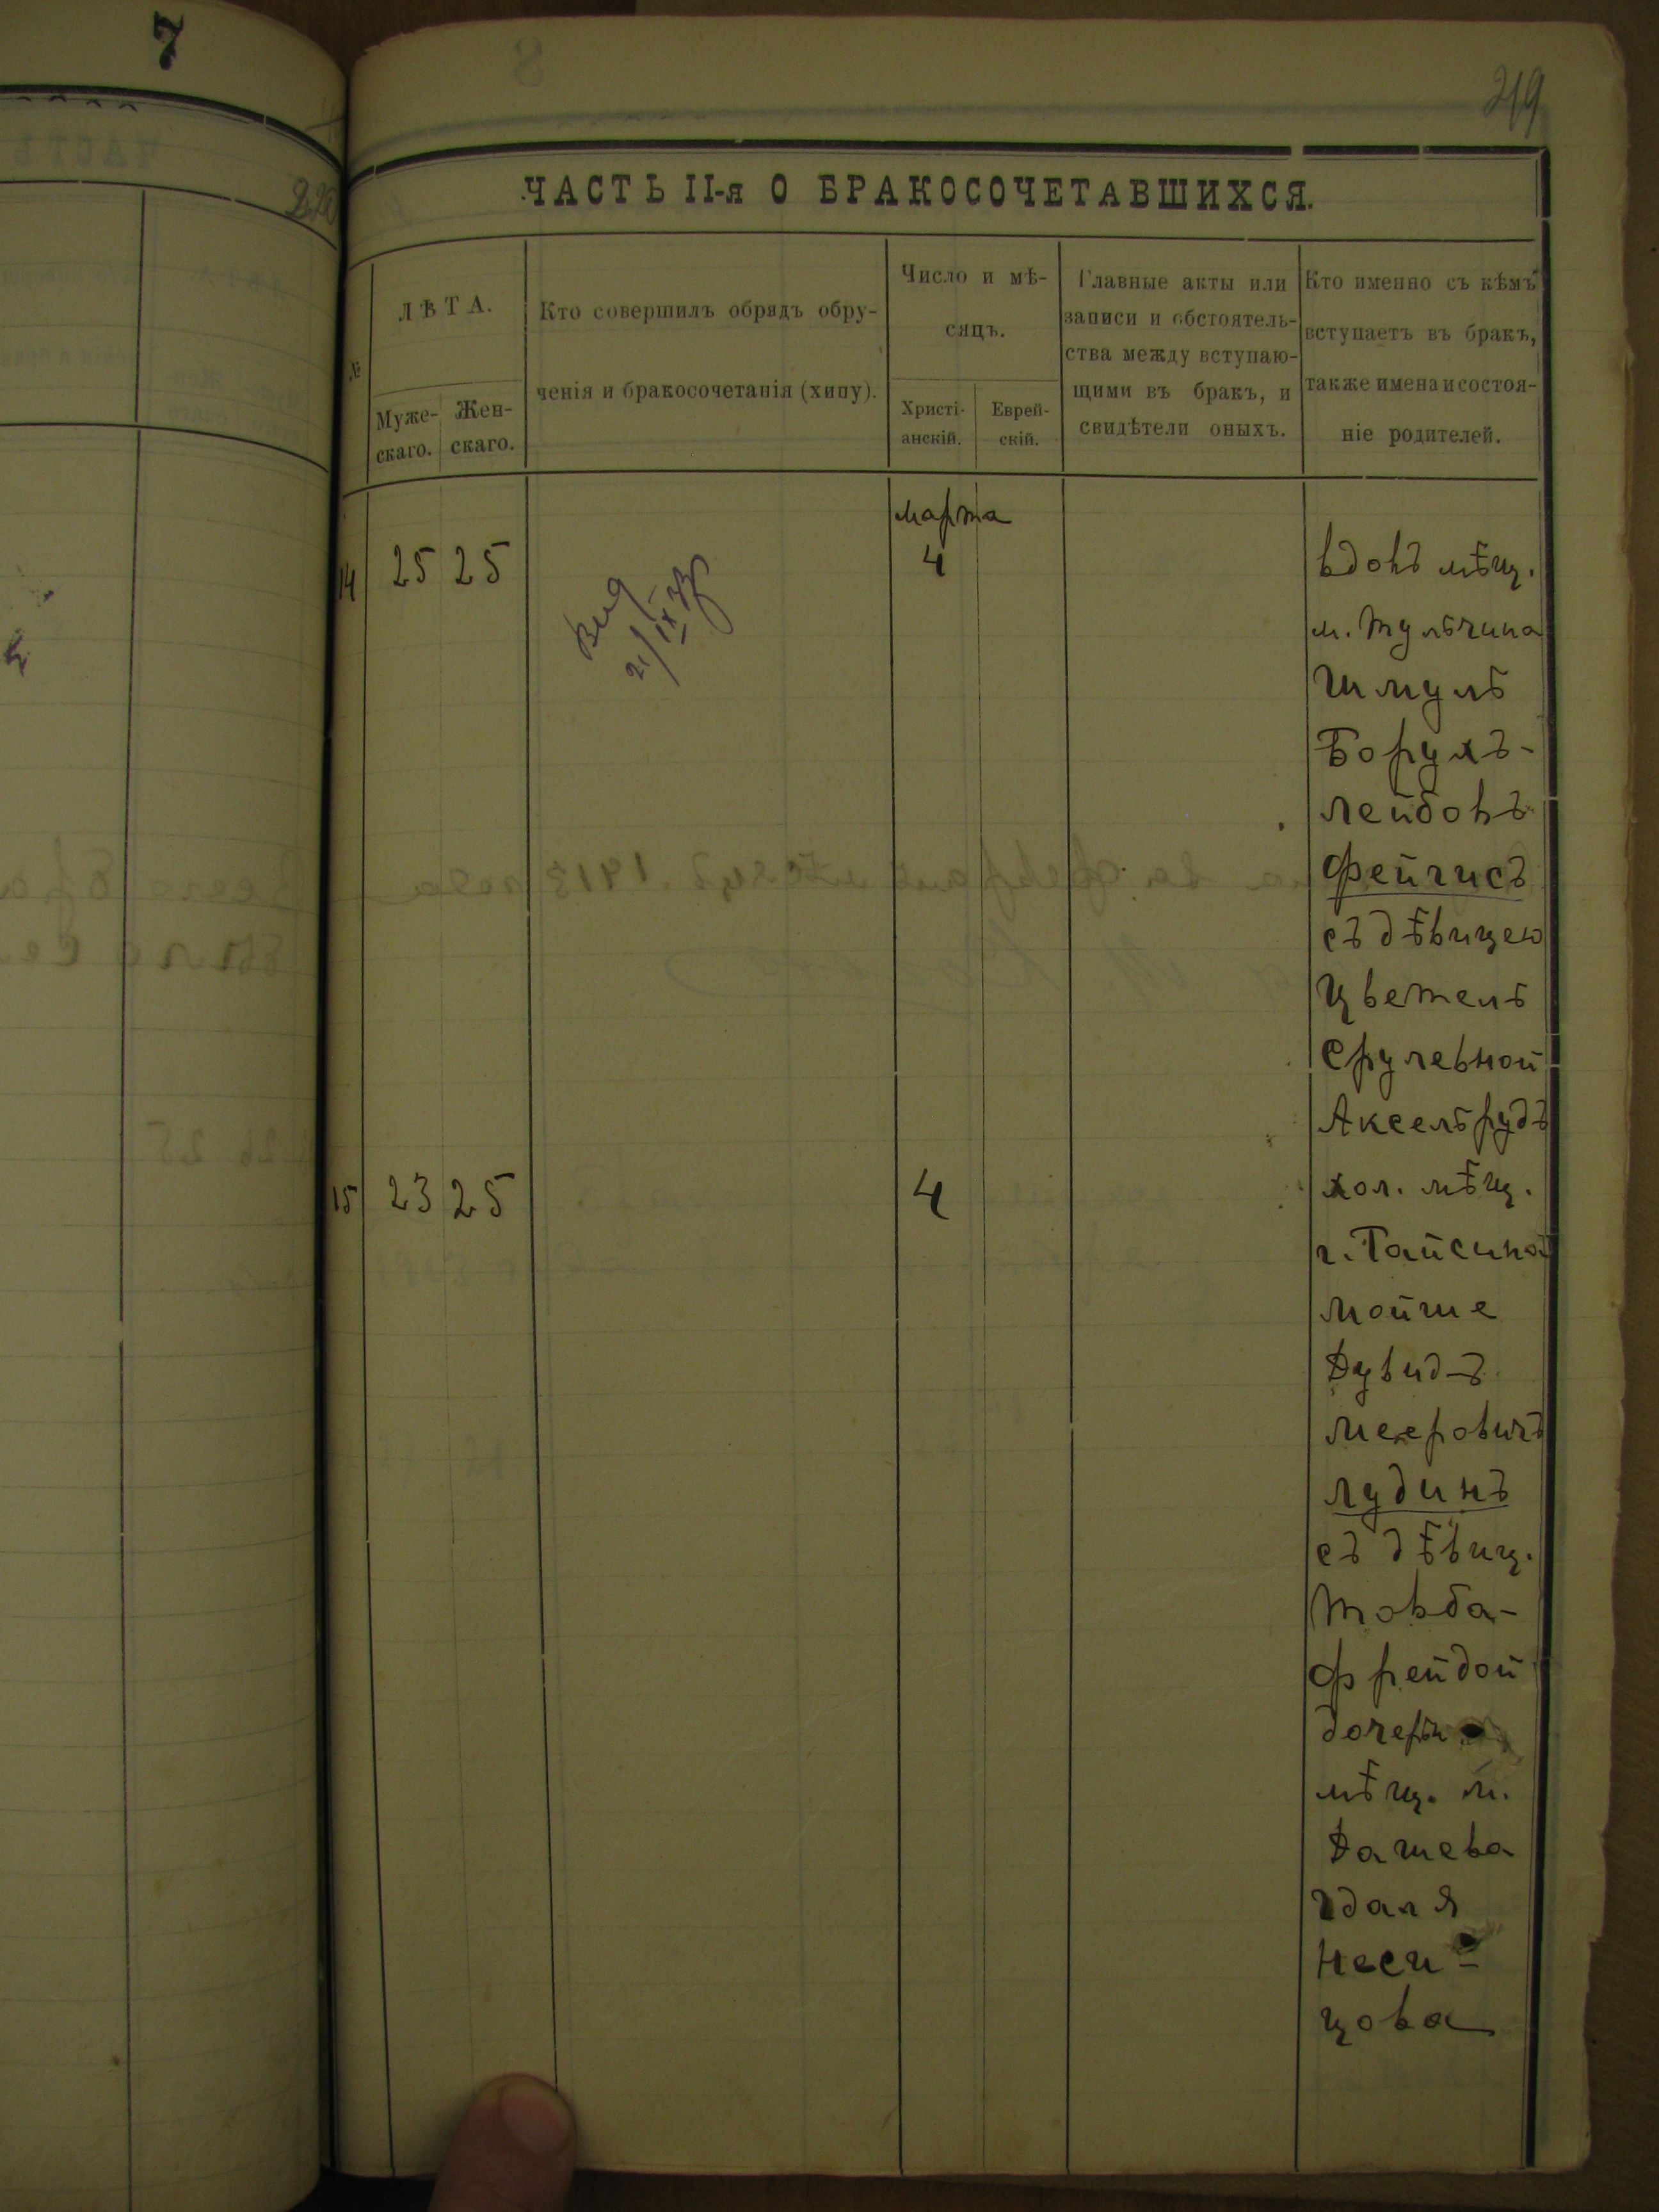 7
219
ЧАСТЬ II-я О БРАКОСОЧЕТАВШИХСЯ.
№
ЛѢТА.
Муже-
скаго.
Жен-
скаго.
Кто совершилъ обрядъ обру-
ченія и бракосочетанія (хипу).
Число и мѣ-
сяцъ.
Христі-
анскій.
Еврей-
скій.
Главные акты или
записи и обстоятель-
ства между вступаю-
щими въ бракъ, и
свидѣтели оныхъ.
Кто именно съ кѣмъ
вступаетъ въ бракъ,
также имена и состоя-
ніе родителей.
марта
14 25 25 4
вдовъ мѣщ.
м. Тульчина
Шмуль
Борухъ-
Лейбовъ
Фейгисъ
съ дѣвицею
Цветель
Срулевной
Аксельрудъ
15 23 25 4
хол. мѣщ.
г. Гайсина
Мойше
Дувидъ
Мееровичъ
Лудинъ
съ дѣвиц.
Товба-
Фрейдой
дочерью
мѣщ. м.
Дашева
Гдаля
Неси-
цова